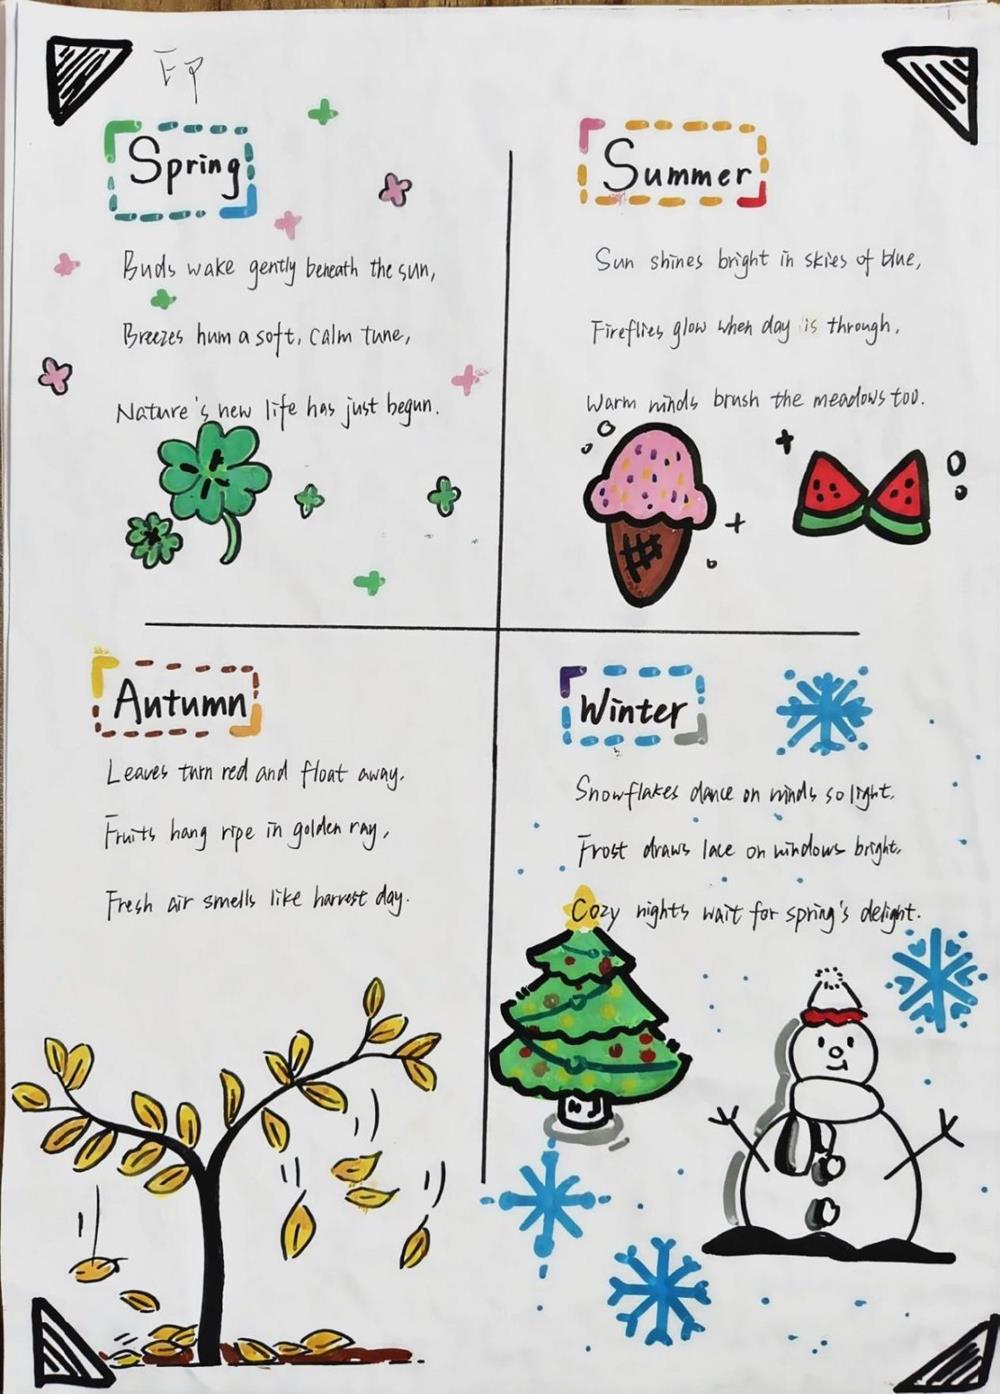 印
Spring
Buds wake gently beneath the sun,
Breezes hum a soft, calm tune,
Nature's new life has just begun.
Summer
Sun shines bright in skies of blue,
Fireflies glow when day is through,
Warm winds brush the meadows too.
Autumn
Leaves turn red and float away.
Fruits hang ripe in golden ray,
Fresh air smells like harvest day.
Winter
Snowflakes dance on winds so light,
Frost draws lace on windows bright,
Cozy nights wait for spring's delight.